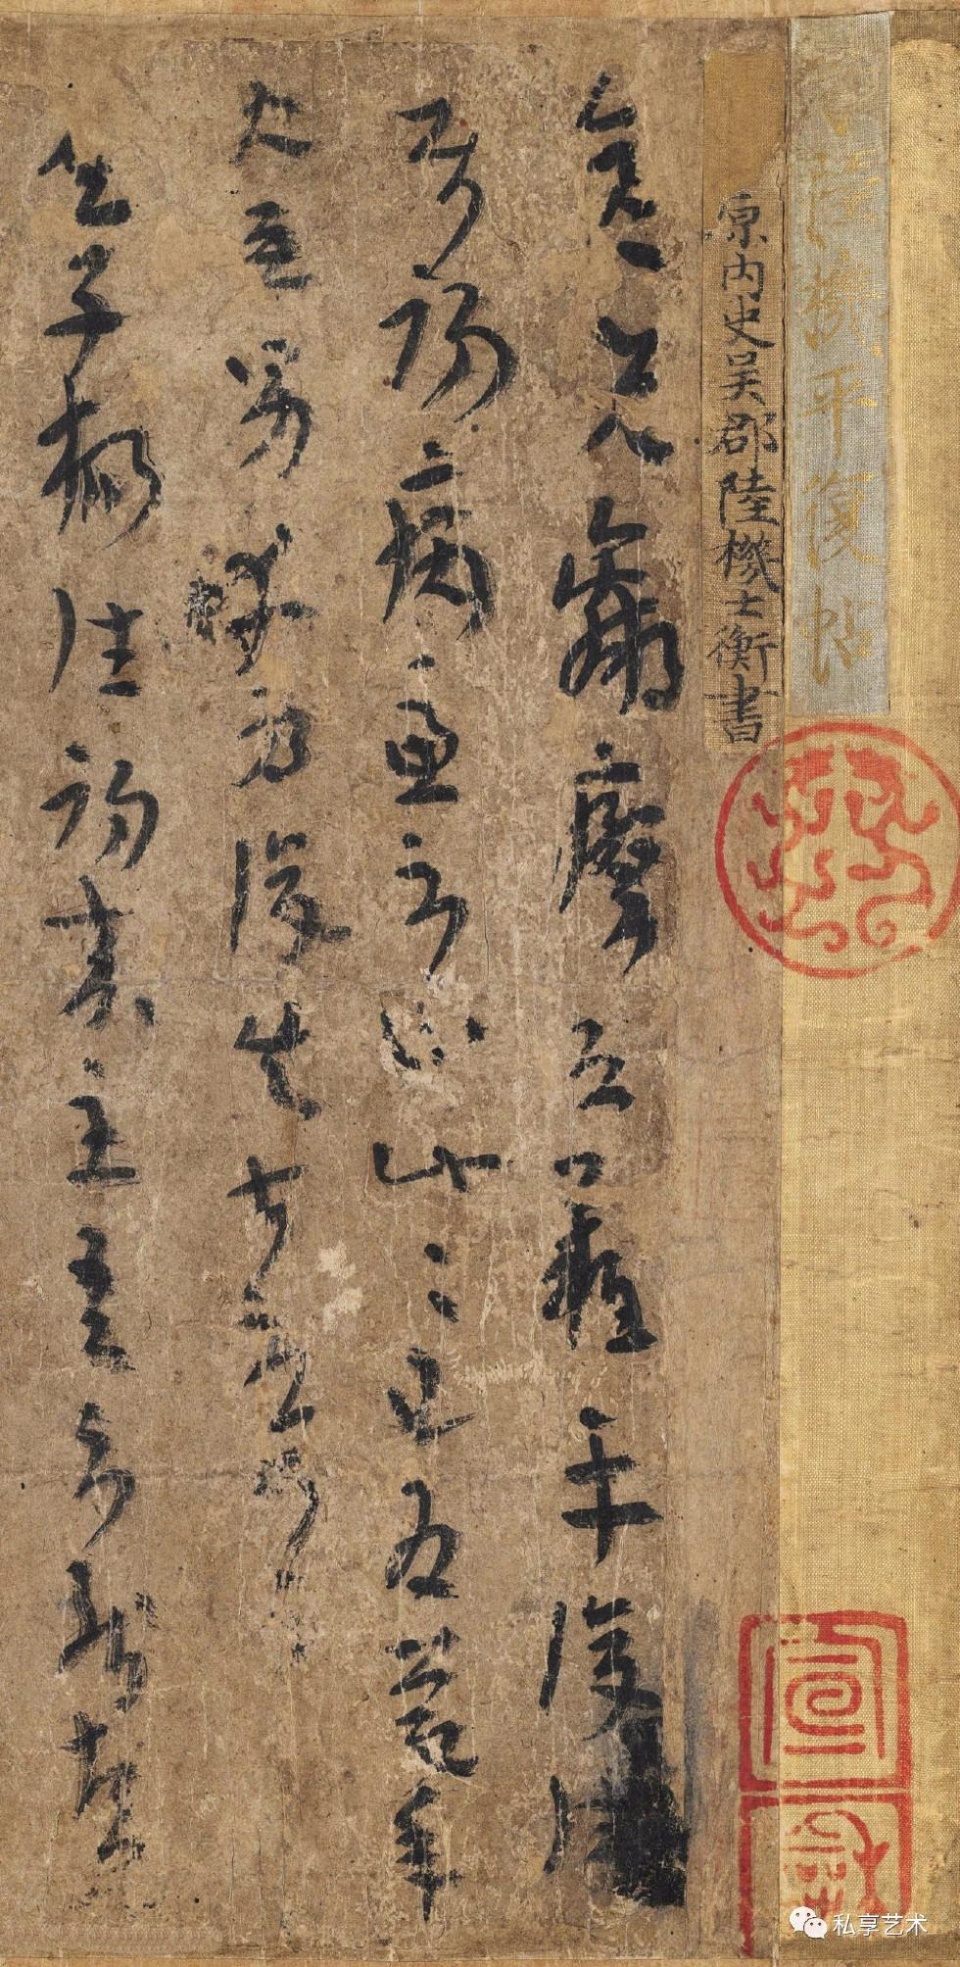 晉陸機平復帖
原內史吳郡陸機士衡書
彦先羸瘵恐難平復往
屬初病慮不止此〻已為慶承
使唯男幸為復失前憂耳
吳子楊往初來主吾不能盡
宣
和
私享艺术